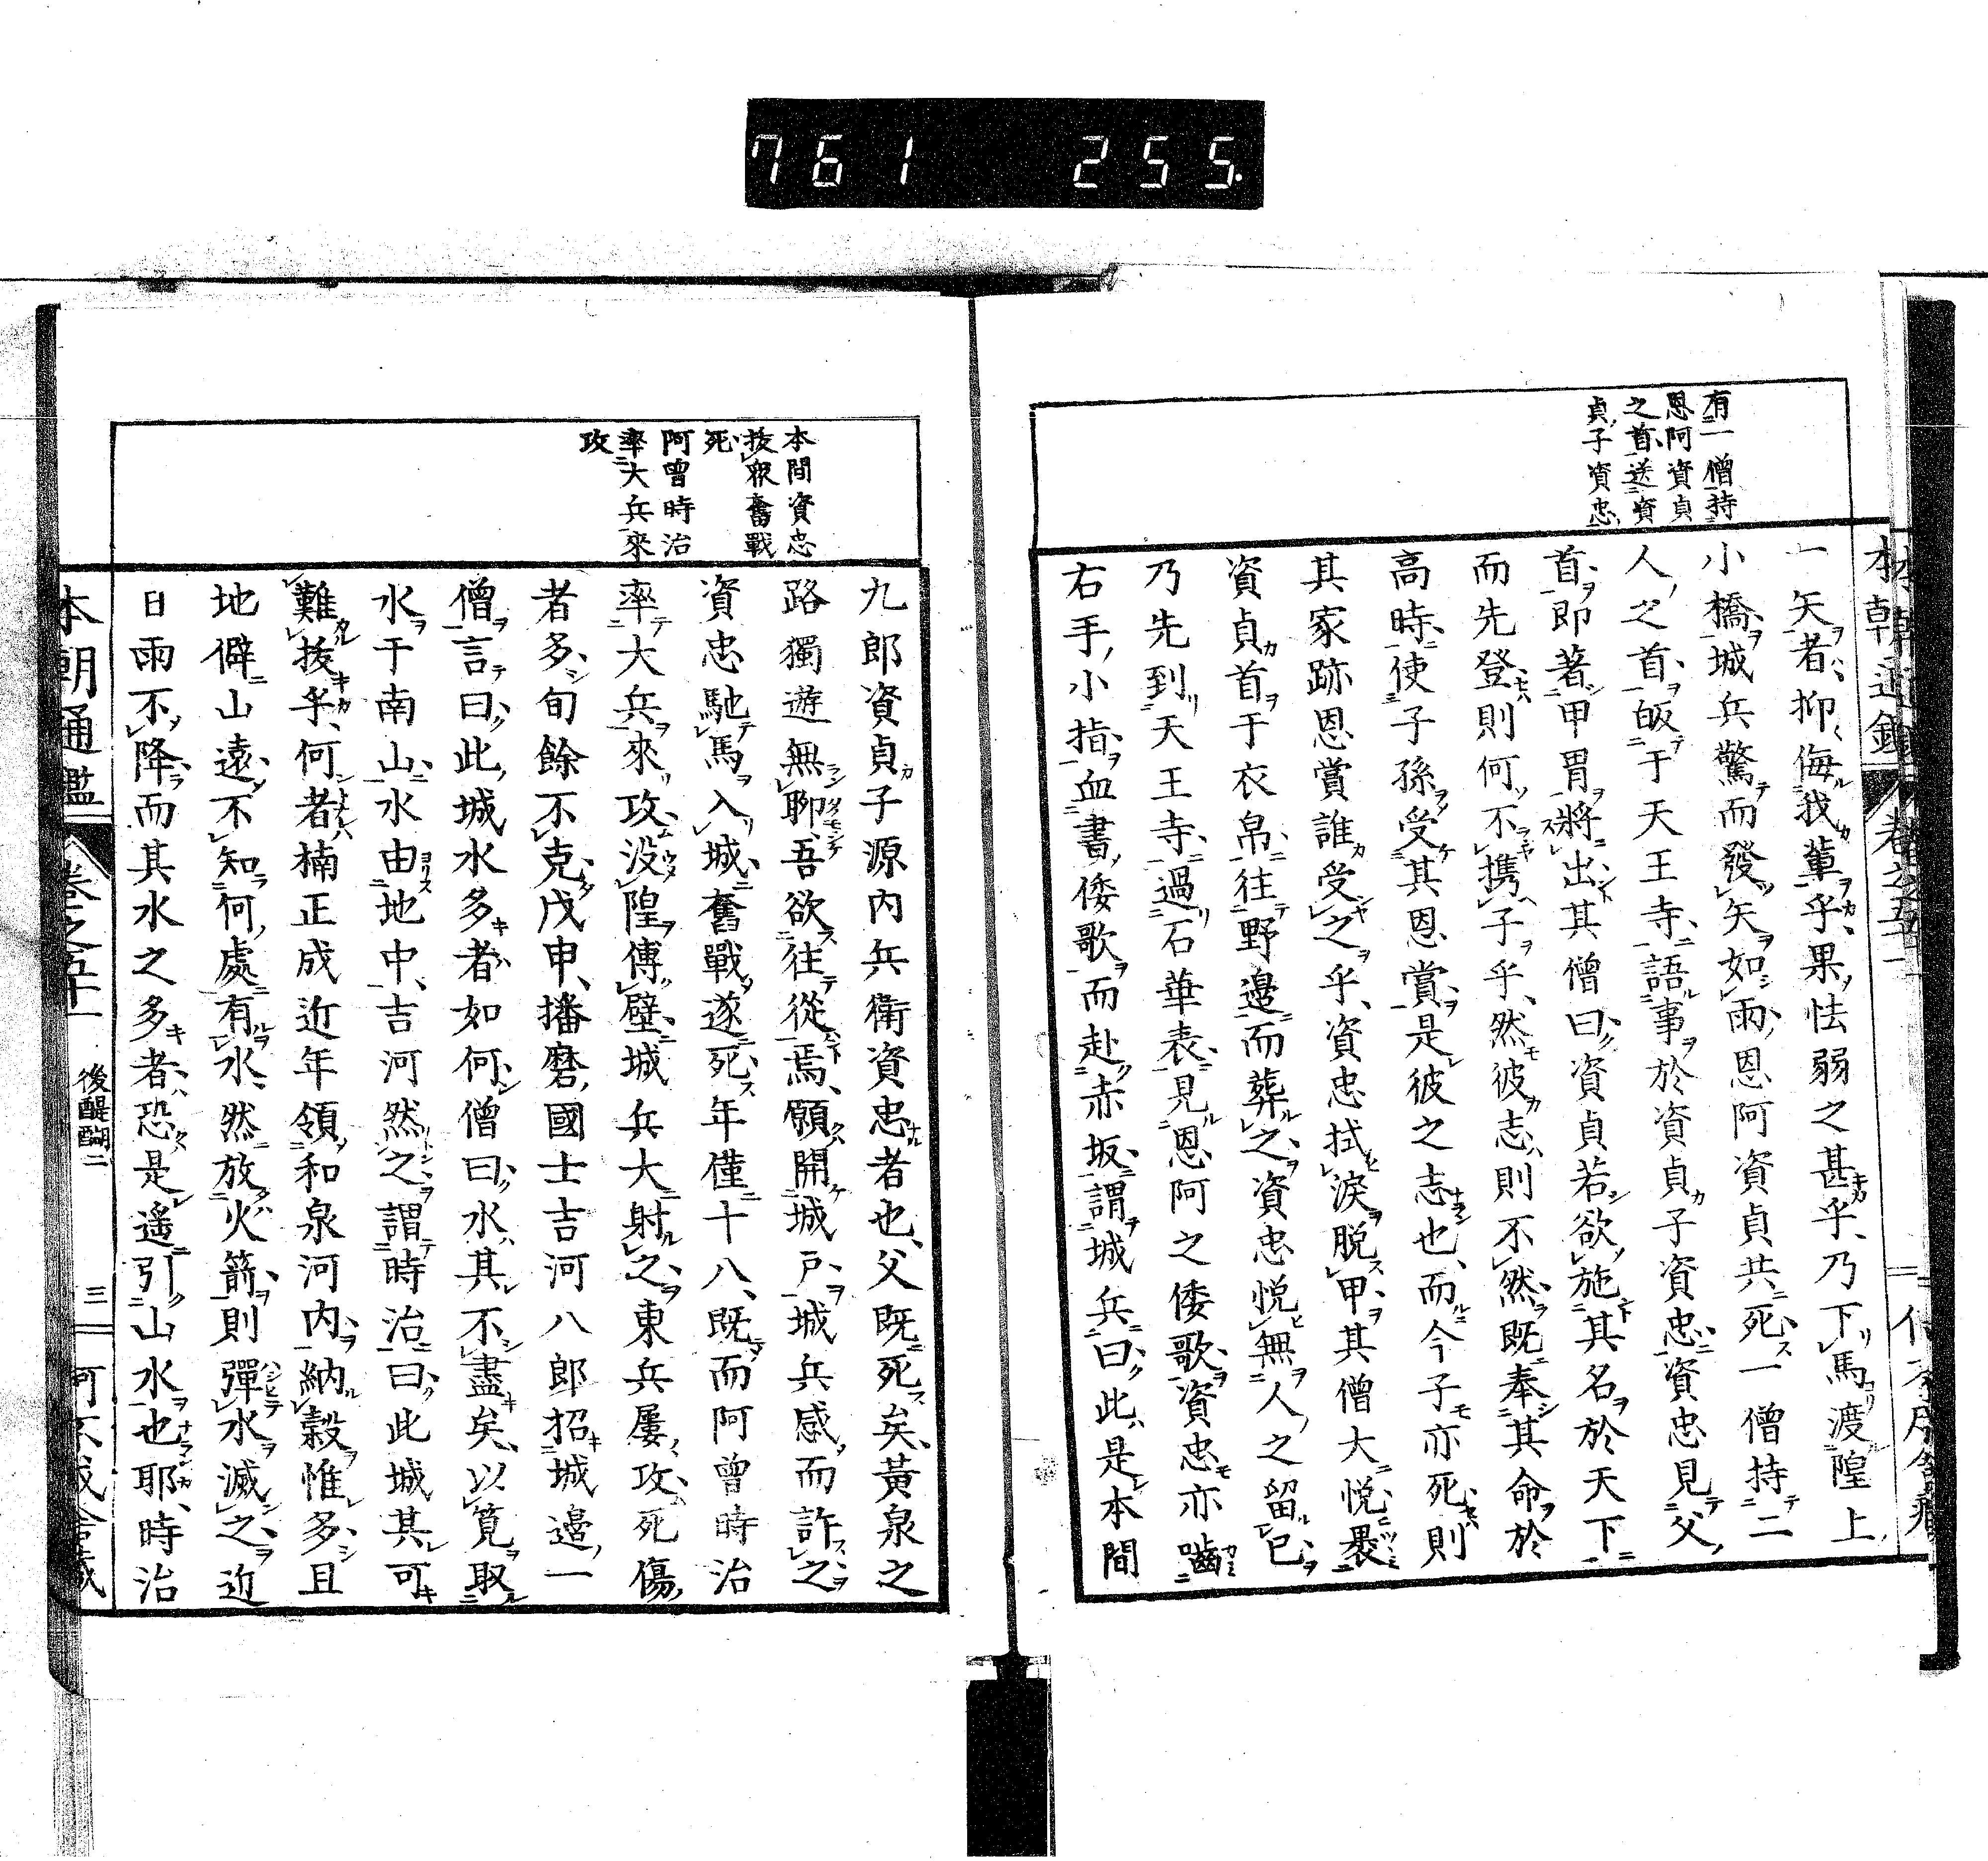 761 255.
有一僧持
恩阿資貞
之首送資
貞子資忠
一矢者抑侮我輩乎果怯弱之甚乎乃下馬渡隍上
小橋城兵驚而發矢如雨恩阿資貞共死一僧持二
人之首皈于天王寺語事於資貞子資忠資忠見父
首即著甲冑將出其僧曰資貞若欲施其名於天下
而先登則何不携子乎然彼志則不然既奉其命於
高時使子孫受其恩賞是彼之志也而今子亦死則
其家跡恩賞誰受之乎資忠拭涙脱甲其僧大悦褁
資貞首于衣帛往野邉而葬之資忠悦無人之留已
乃先到天王寺過石華表見恩阿之倭歌資忠亦嚙
右手小指血書倭歌而赴赤坂謂城兵曰此是本間
本間資忠
拔衆奮戰
死
阿曾時治
率大兵來
攻
九郎資貞子源内兵衛資忠者也父既死矣黃泉之
路獨遊無聊吾欲往從焉願開城戸城兵感而許之
資忠馳馬入城奮戰遂死年僅十八既而阿曾時治
率大兵來攻没隍傅壁城兵大射之東兵屢攻死傷
者多旬餘不克戊申播磨國士吉河八郎招城邉一
僧言曰此城水多者如何僧曰水其不盡矣以筧取
水于南山水由地中吉河然之謂時治曰此城其可
難拔乎何者楠正成近年領和泉河内納穀惟多且
地僻山遠不知何處有水然放火箭則彈水滅之近
日雨不降而其水之多者恐是遙引山水也耶時治
本朝通鑑 卷之五十一 後醍醐二 三